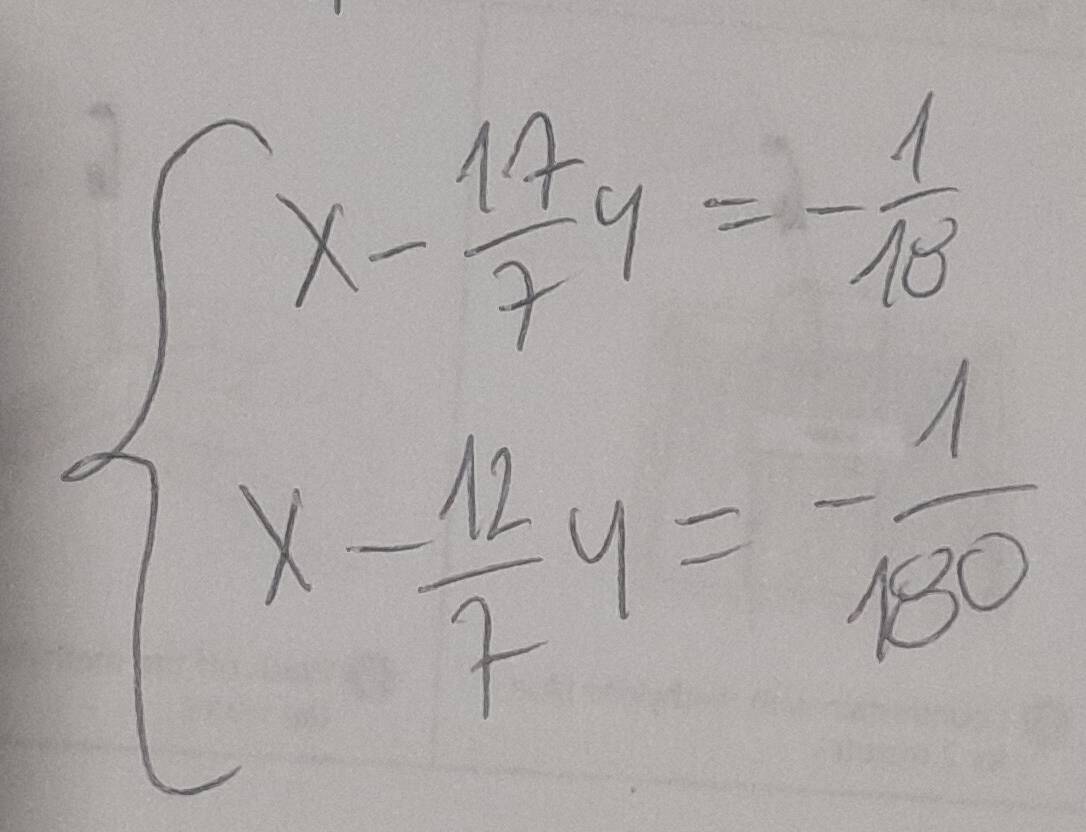 x - 17/7 y = - 1/18
x - 12/7 y = - 1/180